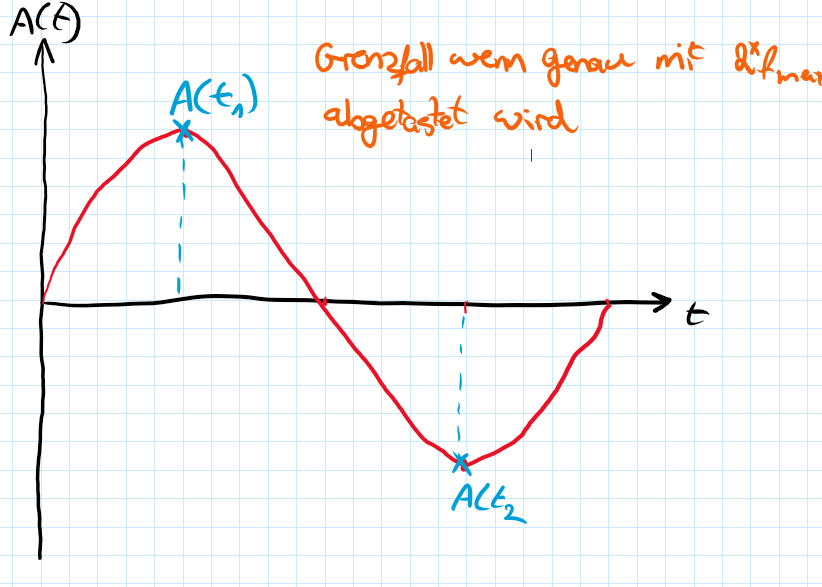 A(t)
Grenzfall wenn genau mit 2*fmax
abgetastet wird
A(t1)
t
A(t2